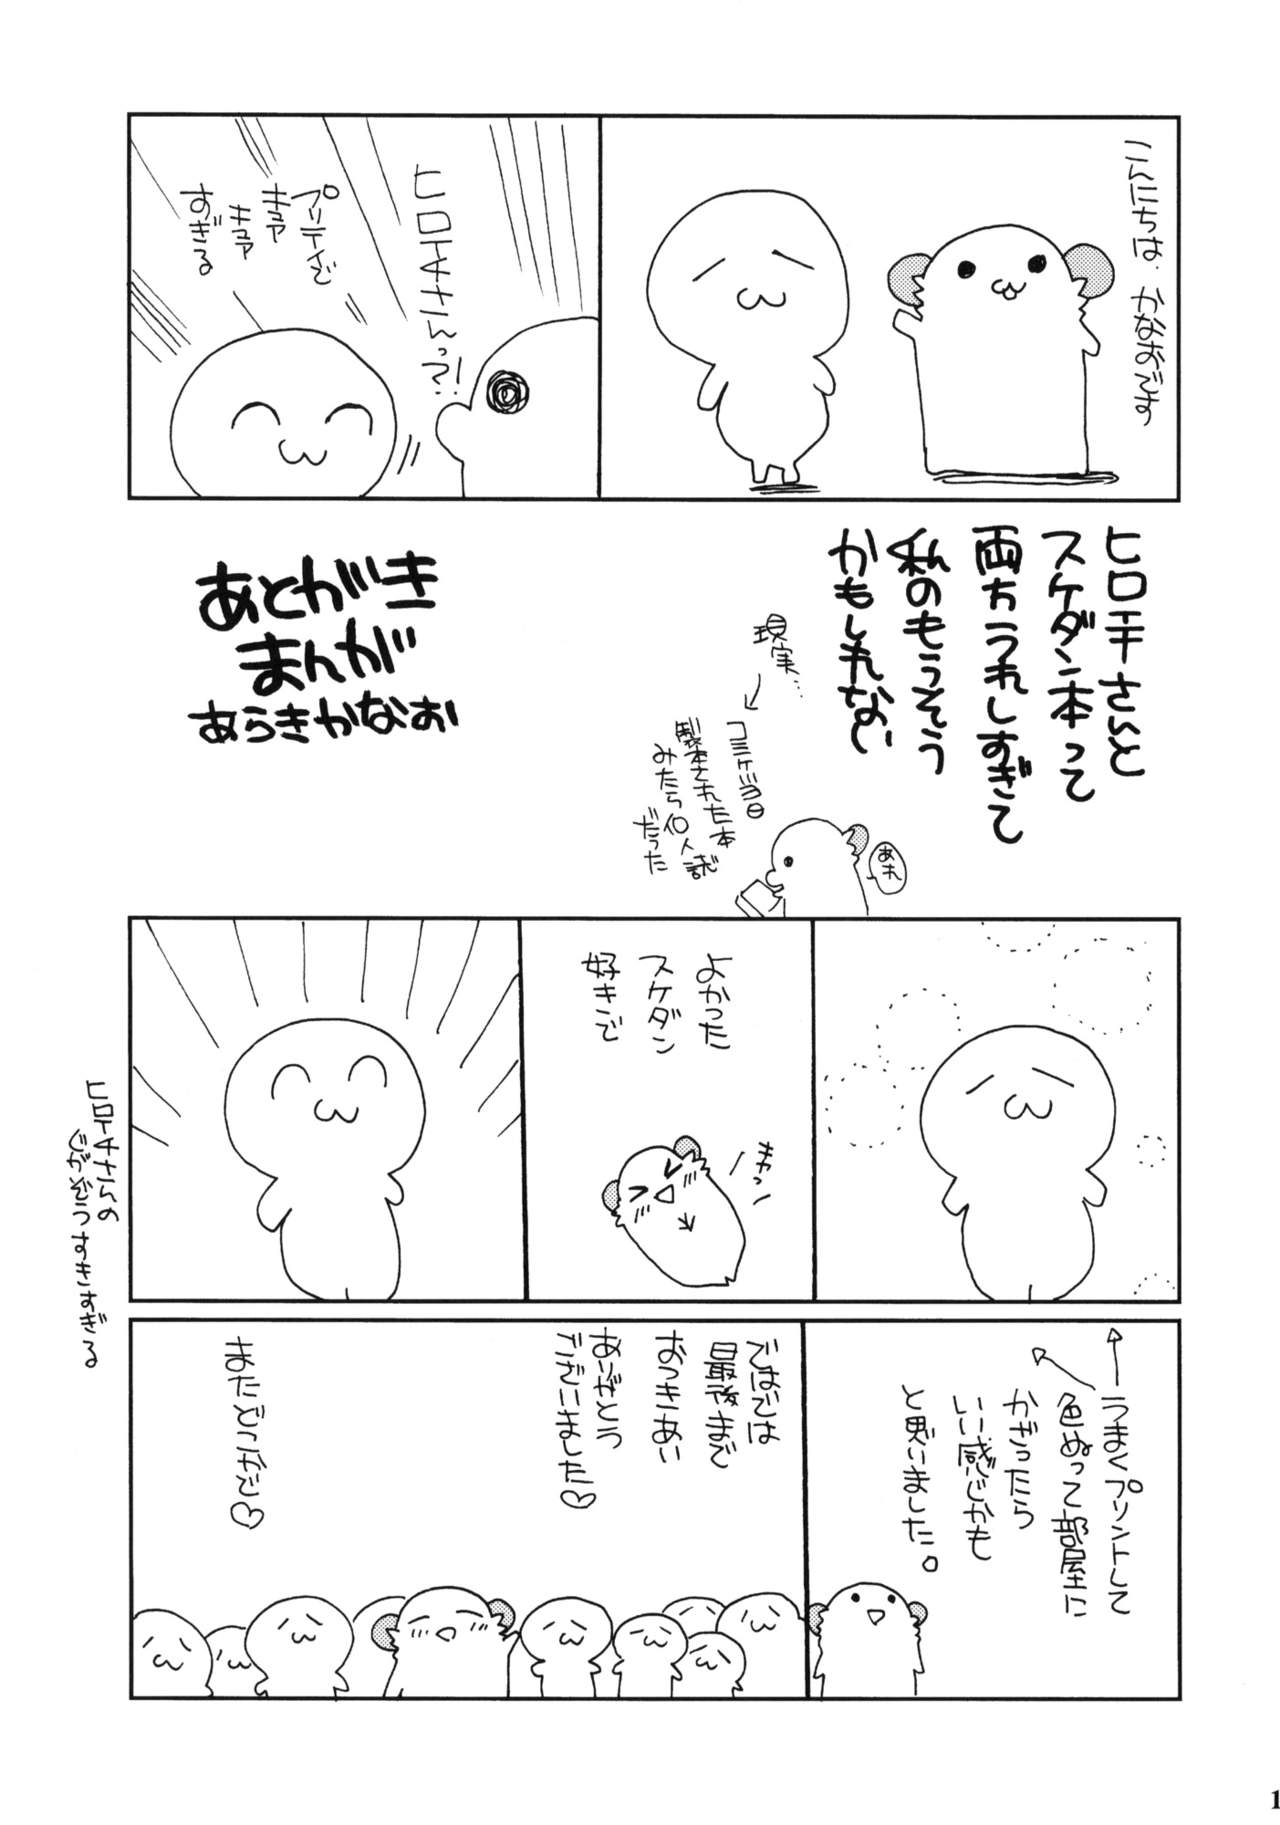 こんにちは、かなおです
ヒロイチさんっ?!
プリティで
キュア
キュア
すぎる
ヒロイチさんと
スケダン本って
両方うれしすぎて
私のもうそう
かもしれない
あれ
現実…
コミケ当日
製本された本
みたら個人誌
だった
あとがき
まんが
あらきかなお
よかった
スケダン
好きで
キャっ
ヒロイチさんの
じがぞうすきすぎる
うまくプリントして
色ぬって部屋に
かざったら
いい感じかも
と思いました。
ではでは
最後まで
おつきあい
ありがとう
ございました♡
またどこかで♡
1